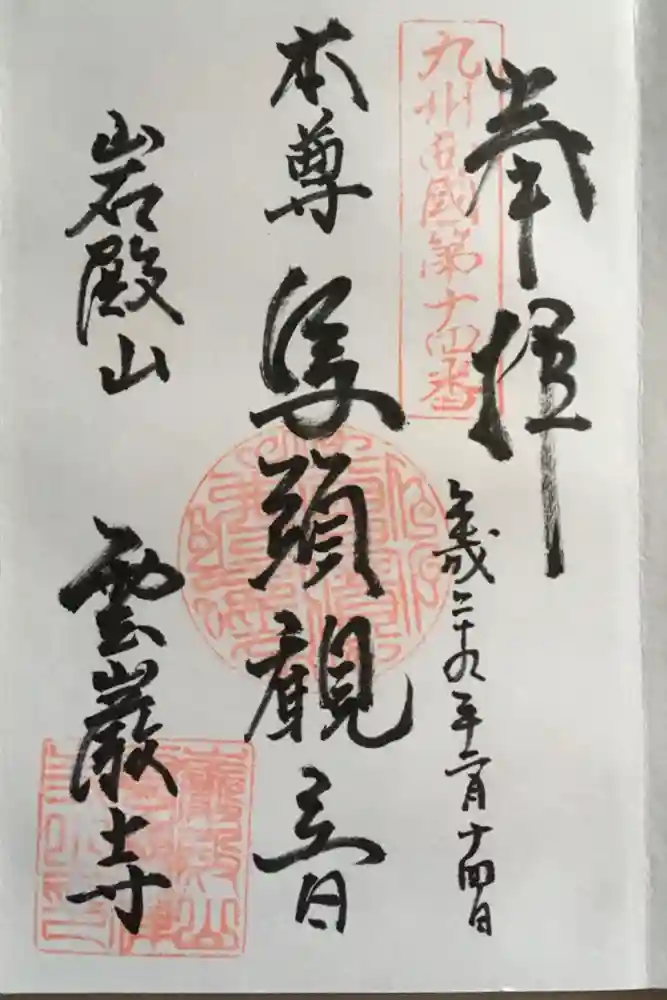 奉拝
九州西國第十四番
平成二十九年二月十四日
本尊 馬頭観音
岩殿山
雲巌寺